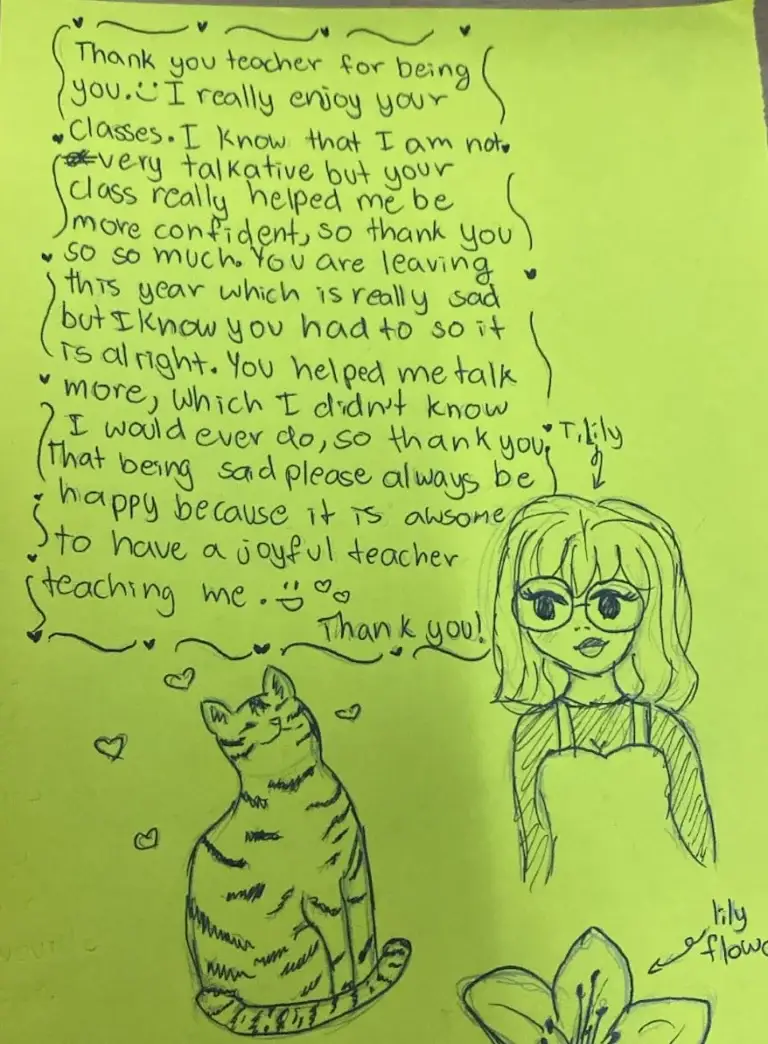 Thank you teacher for being
you. I really enjoy your
classes. I know that I am not
very talkative but your
class really helped me be
more confident, so thank you
so so much. You are leaving
this year which is really sad
but I know you had to so it
is alright. You helped me talk
more, which I didn't know
I would ever do, so thank you.
That being said please always be
happy because it is awsome
to have a joyful teacher
teaching me.
Thank you!
T. Lily
lily
flowe